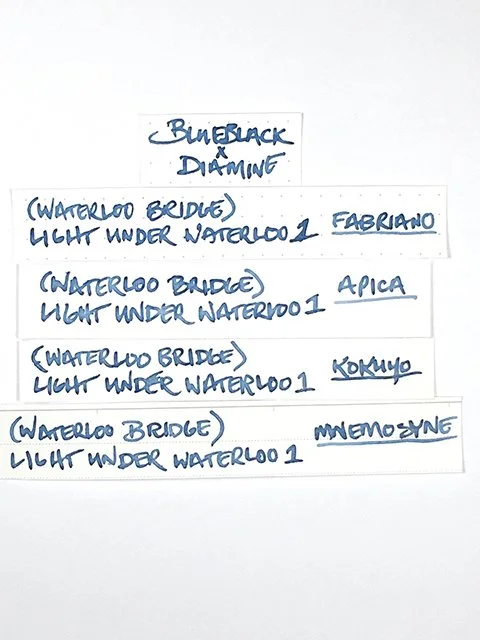 BLUEBLACK
X
DIAMINE
(WATERLOO BRIDGE)
LIGHT UNDER WATERLOO 1 FABRIANO
(WATERLOO BRIDGE) APICA
LIGHT UNDER WATERLOO 1
(WATERLOO BRIDGE) KOKUYO
LIGHT UNDER WATERLOO 1
(WATERLOO BRIDGE) MNEMOSYNE
LIGHT UNDER WATERLOO 1